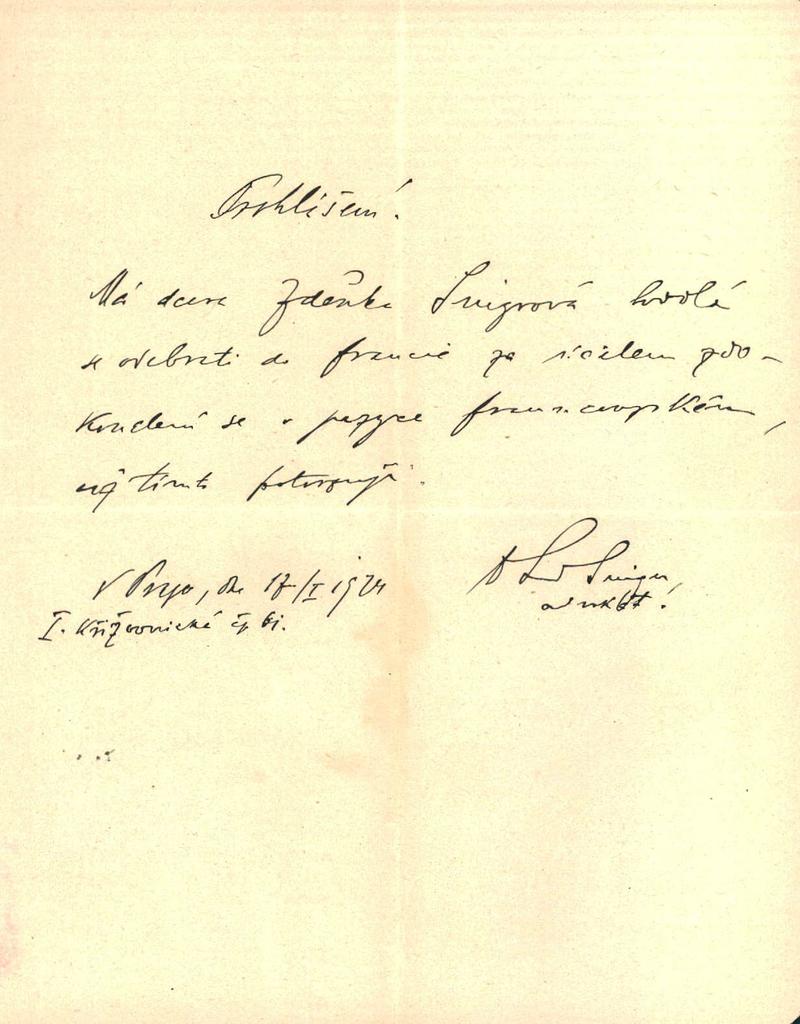 Prohlášení.
Má dcera Zdeňka Singrová hodlá
se odebrati do Francie za účelem zdo-
konalení se v jazyce francouzském,
což tímto potvrzuji.
V Praze, dne 17/I 1924
Singer,
advokát.
I. Křižovnická čp